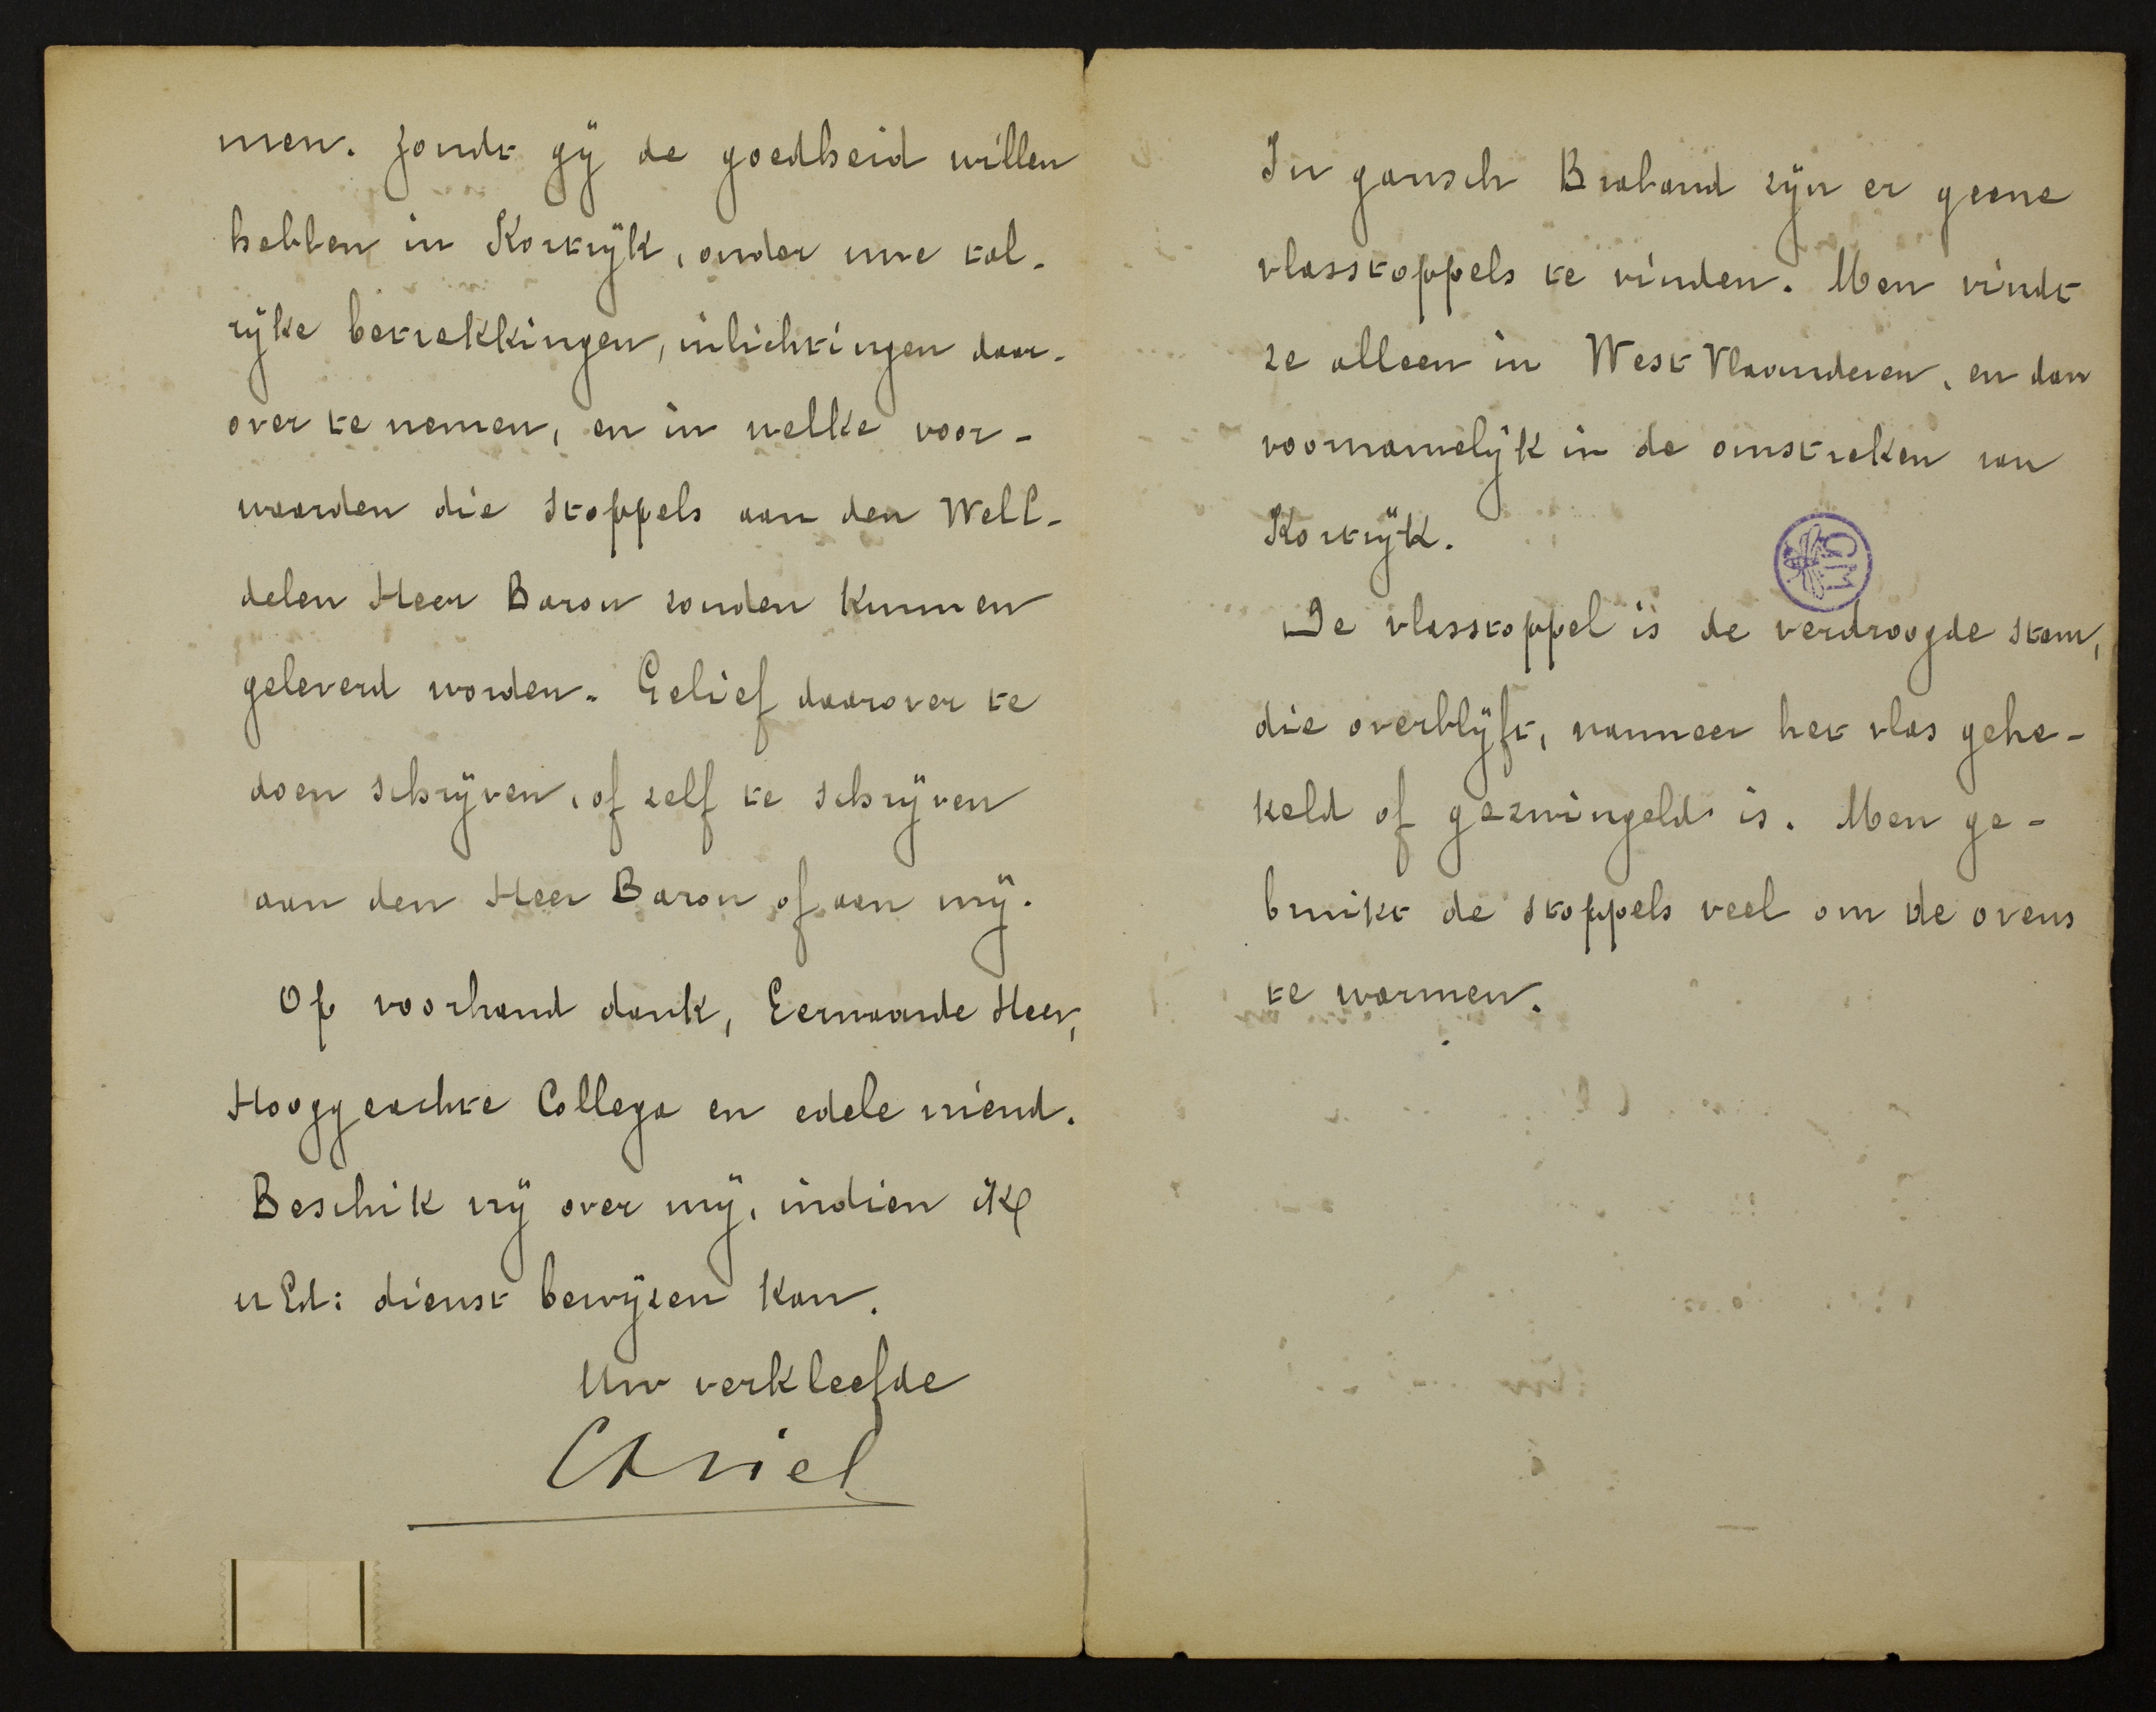 men. Zoudt gÿ de goedheid willen
hebben in Kortrÿk, onder uwe tal-
rÿke betrekkingen, inlichtingen daar-
over te nemen, en in welke voor-
waarden die stoppels aan den WelE-
delen Heer Baron zouden kunnen
geleverd worden. Gelief daarover te
doen schrÿven, of zelf te schrÿven
aan den Heer Baron of aan mÿ.
Op voorhand dank, Eerwaarde Heer,
Hooggeachte Collega en edele vriend.
Beschik vrÿ over mÿ, indien ik
u Ed: dienst bewÿzen kan.
Uw verkleefde
In gansch Braband zÿn er geene
vlasstoppels te vinden. Men vindt
ze alleen in West Vlaanderen, en dan
voornamelÿk in de omstreken van
Kortrÿk.
De vlasstoppel is de verdroogde stam,
die overblÿft, wanneer het vlas gehe-
keld of gezwingeld is. Men ge-
bruikt de stoppels veel om de ovens
te warmen.